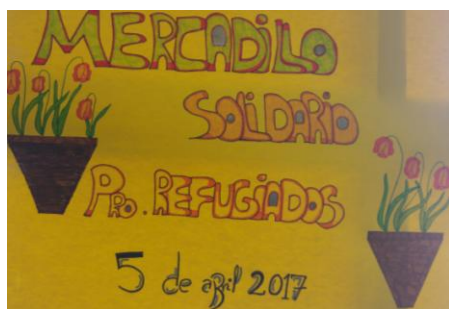 MERCADILLO
SOLIDARIO
PRO. REFUGIADOS
5 de abril 2017